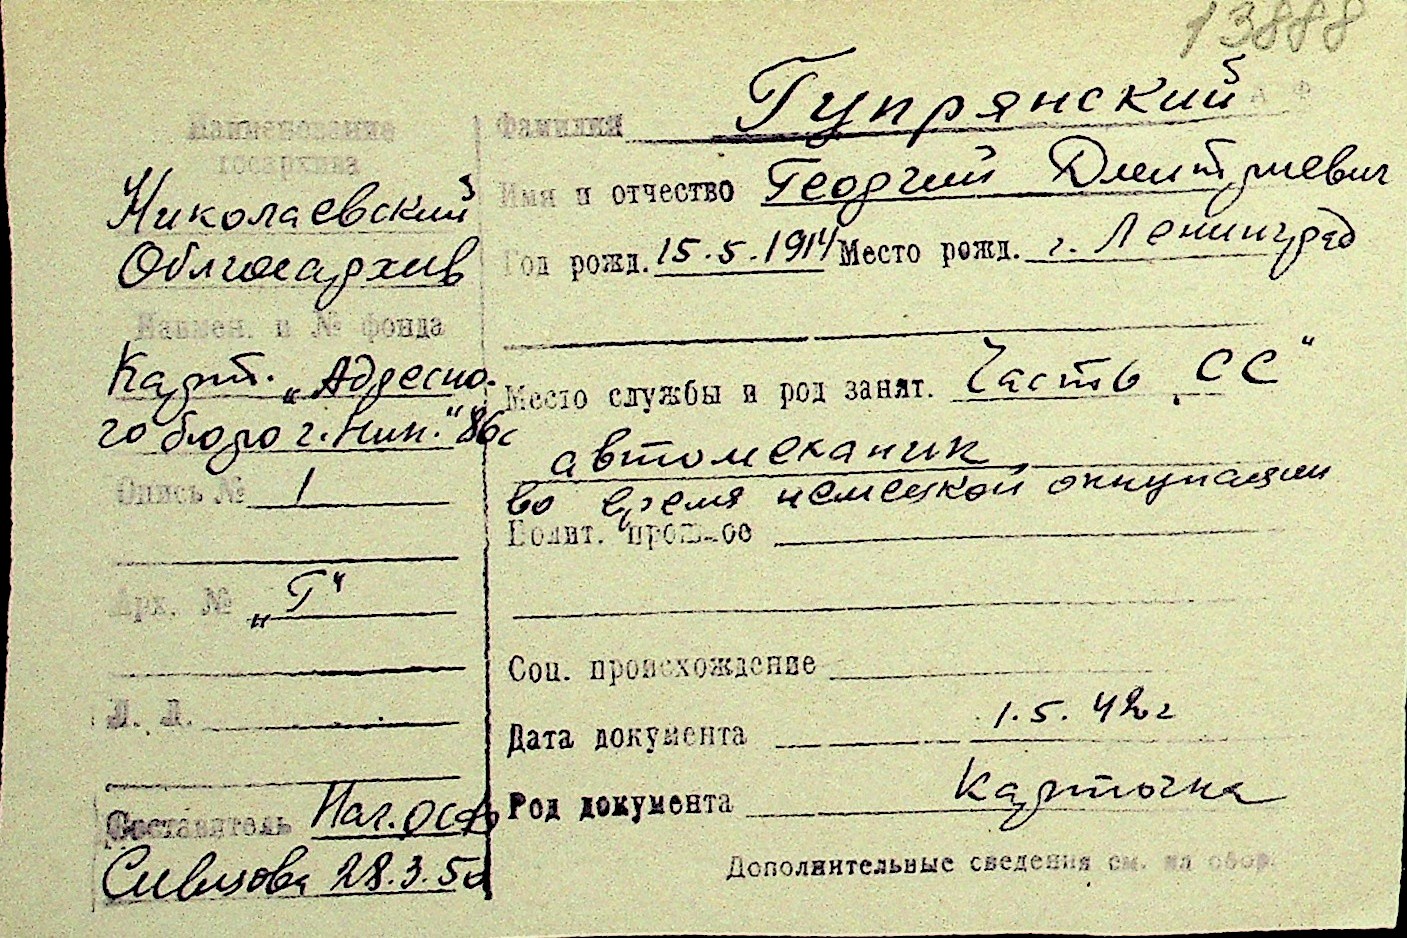 13888
Наименование
госархива
Николаевский
Облгосархив
Наимен. и № фонда
Карт. „Адресно-
го бюро г. Ник." 86с
Опись № 1
Арх. № „Г"
Л. Л.
Составитель Нач. ОСФ
28.3.50
Фамилия Гупрянский
Имя и отчество Георгий Дмитриевич
Год рожд. 15.5.1914 Место рожд. г. Ленинград
Место службы и род занят. Часть „СС"
автомеханик
во время немецкой оккупации
Полит. прошлое
Соц. происхождение
Дата документа 1.5.42 г
Род документа Карточка
Дополнительные сведения см. на обор.